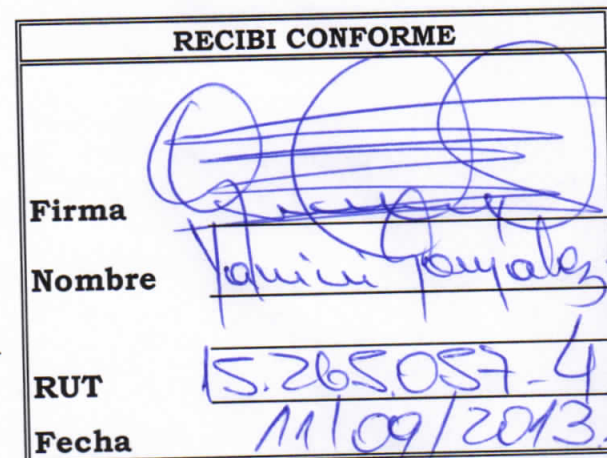 RECIBI CONFORME
Firma
Nombre Gonzalez
RUT 15.265.057-4
Fecha 11/09/2013.